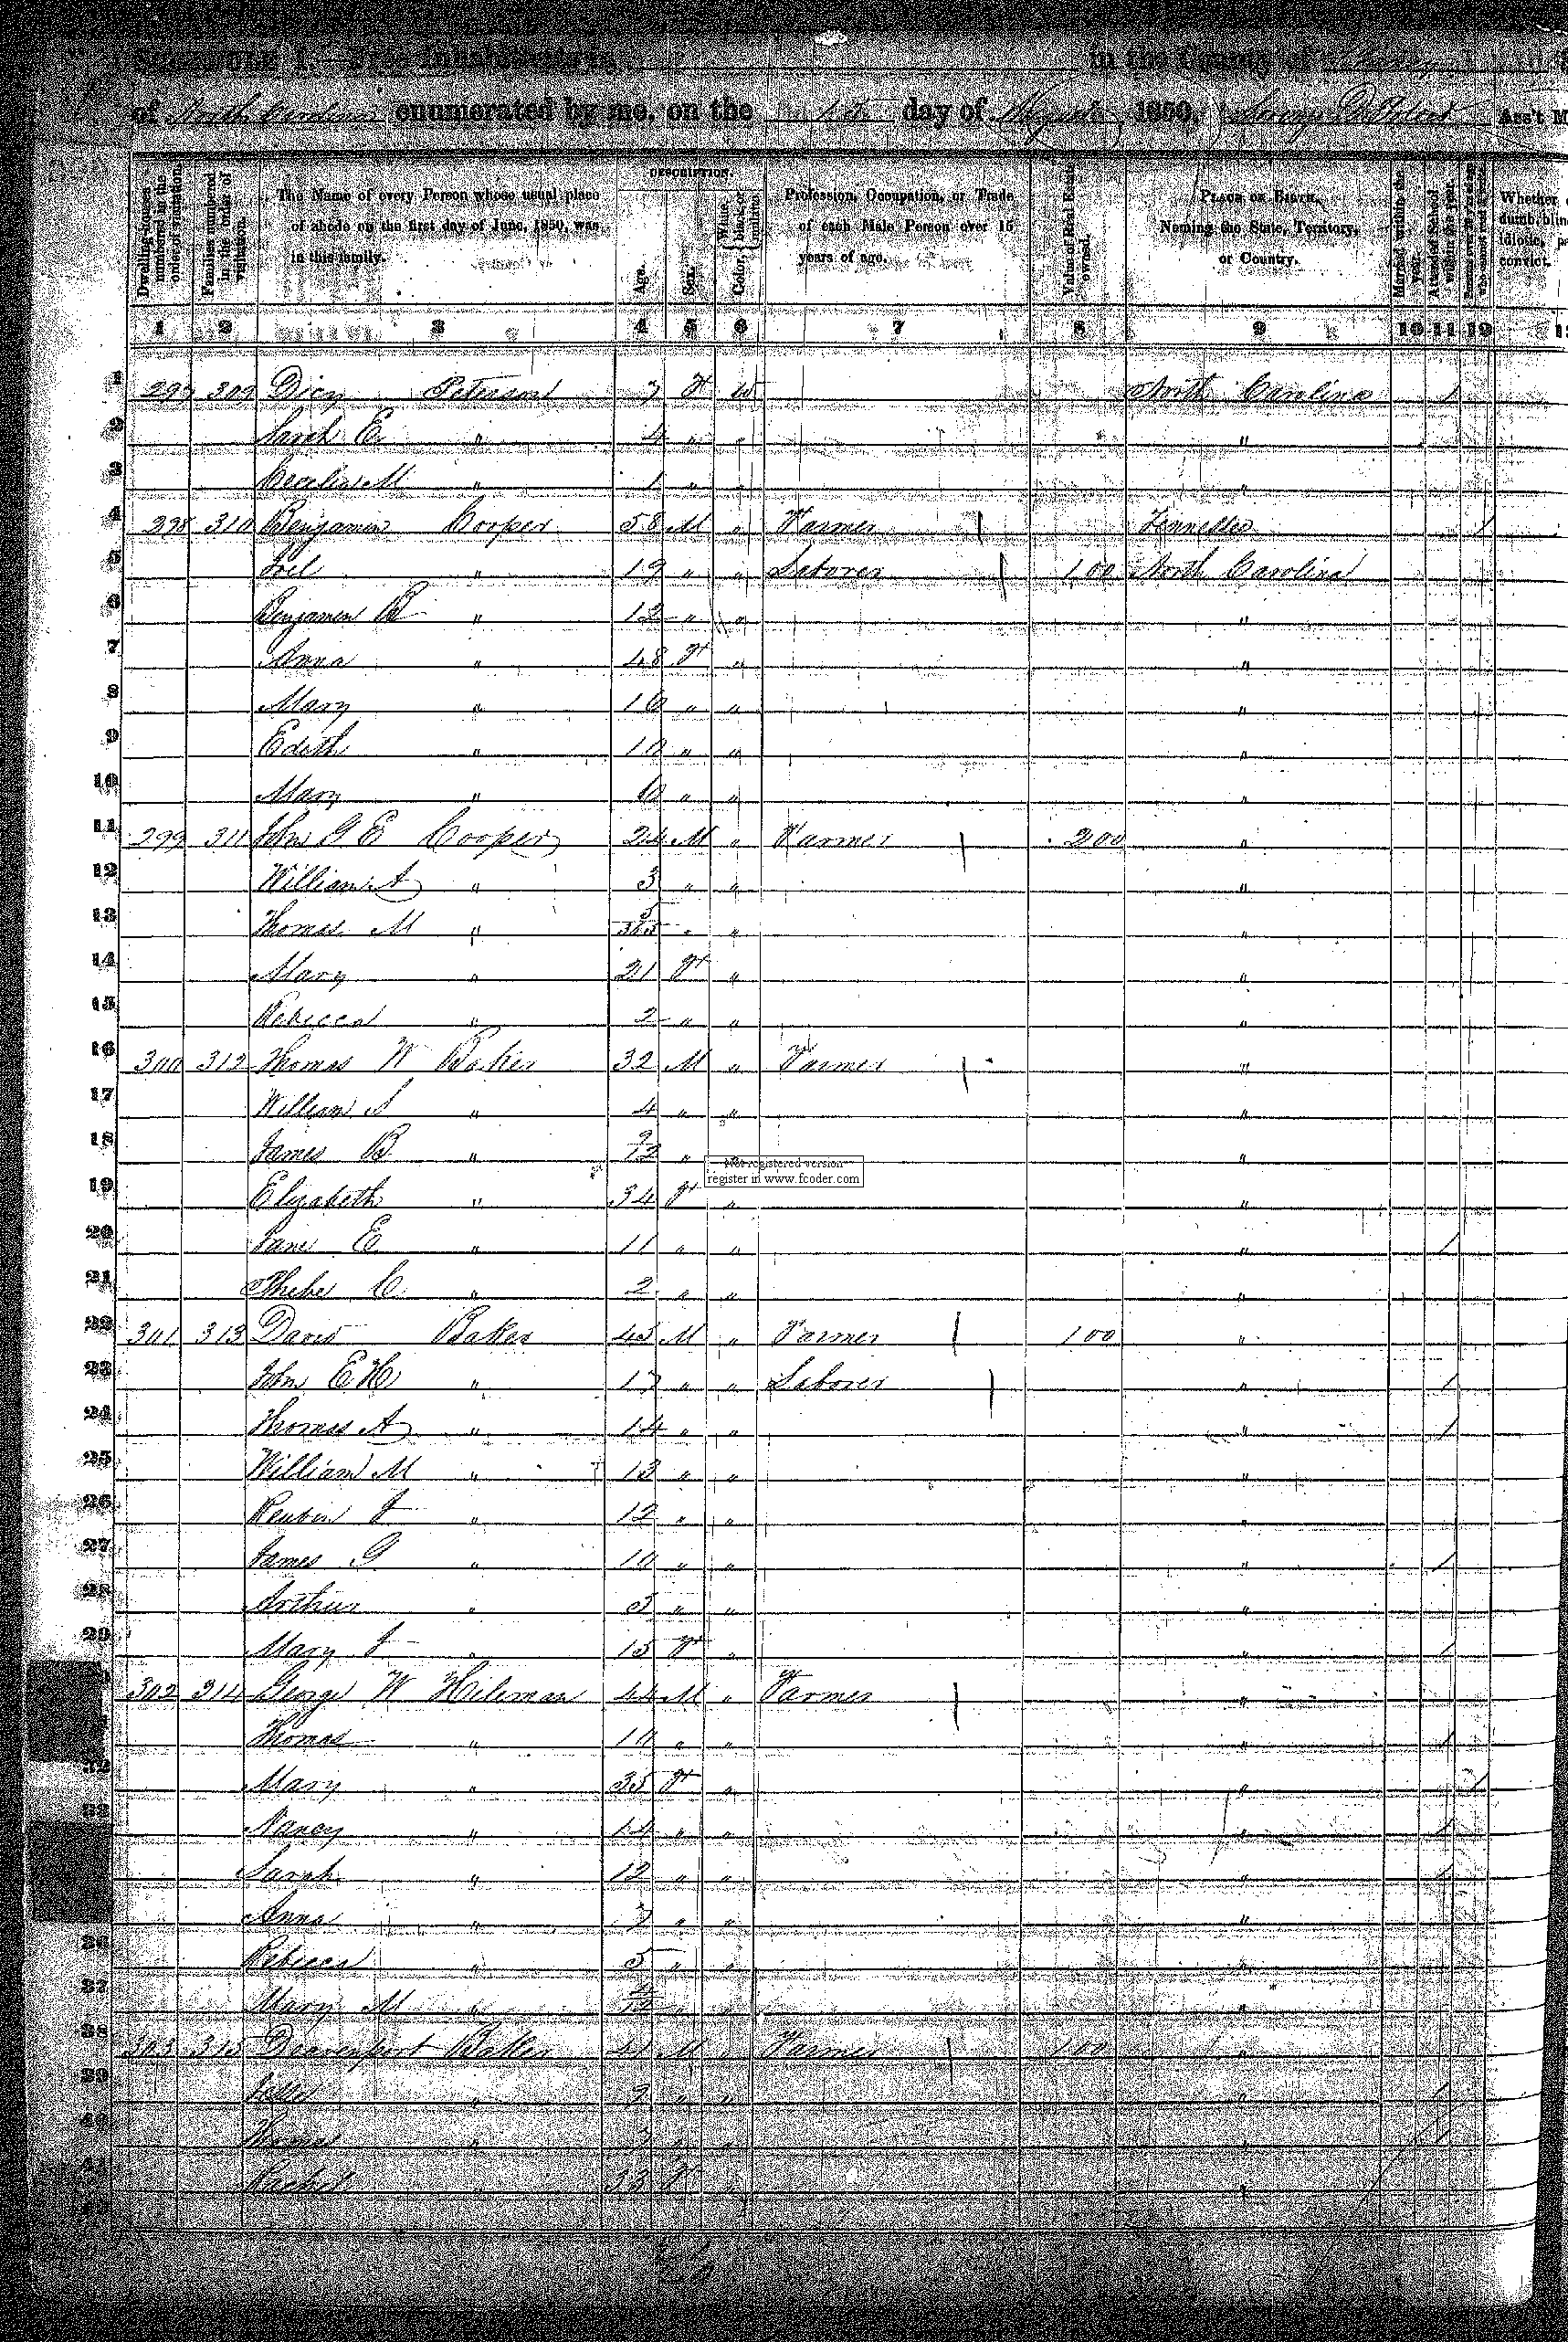 SCHEDULE I.—Free Inhabitants in in the County of
of North Carolina enumerated by me, on the day of August, 1850. Ass't M
Dwelling-houses numbered in the order of visitation.
Families numbered in the order of visitation.
The Name of every Person whose usual place of abode on the first day of June, 1850, was in this family.
DESCRIPTION.
Age.
Sex.
Color, { White, black, or mulatto.
Profession, Occupation, or Trade of each Male Person over 15 years of age.
Value of Real Estate owned.
PLACE OF BIRTH. Naming the State, Territory, or Country.
Married within the year.
Attended School within the year.
Whether dumb, blin idiotic, p convict.
1 2 3 4 5 6 7 8 9 10 11 12
1 297 309 Dicy Peterson 7 F W North Carolina 1
2 Sarah E " 4 " " "
3 M " 1 " " "
4 298 310 Benjamin Cooper 58 M " Farmer Tennessee 1
5 Joel " 19 " " Laborer 100 North Carolina
6 Benjamin " 12 " " "
7 Anna " 48 F " "
8 Mary " 16 " " "
9 Edith " 10 " " "
10 Mary " " " "
11 299 311 John G E Cooper 24 M " Farmer 200 "
12 William A " 3 " " "
13 Thomas M " 5/365 " " "
14 Mary " 21 F " "
15 Rebecca " 2 " " "
16 300 312 Thomas W Baker 32 M " Farmer "
17 William S " 4 " " "
18 James B " 9/12 " " "
19 Elizabeth " 34 F " "
20 Jane E " 11 " " " 1
21 Phebe C " 2 " " "
22 301 313 David Baker 45 M " Farmer 100 "
23 John E H " 17 " " Laborer " 1
24 Thomas A " 14 " " " 1
25 William M " 13 " " "
26 Reuben J " 12 " " "
27 James G " 10 " " " 1
28 Arthur " 5 " " "
29 Mary J " 15 F " " 1
302 314 George W Hileman 44 M " Farmer "
Thomas " 10 " " " 1
32 Mary " 35 F " " 1
33 Nancy " 14 " " " 1
Sarah " 12 " " " 1
Anna " 7 " " "
36 Rebecca " 5 " "
37 Mary M " "
38 303 315 Deavenport Baker 41 M " Farmer 100 "
39 Jesse " 9 " " " 1
40 Thomas " 7 " " " 1
41 Rachel " 33 F "
Not registered version
register in www.fcoder.com